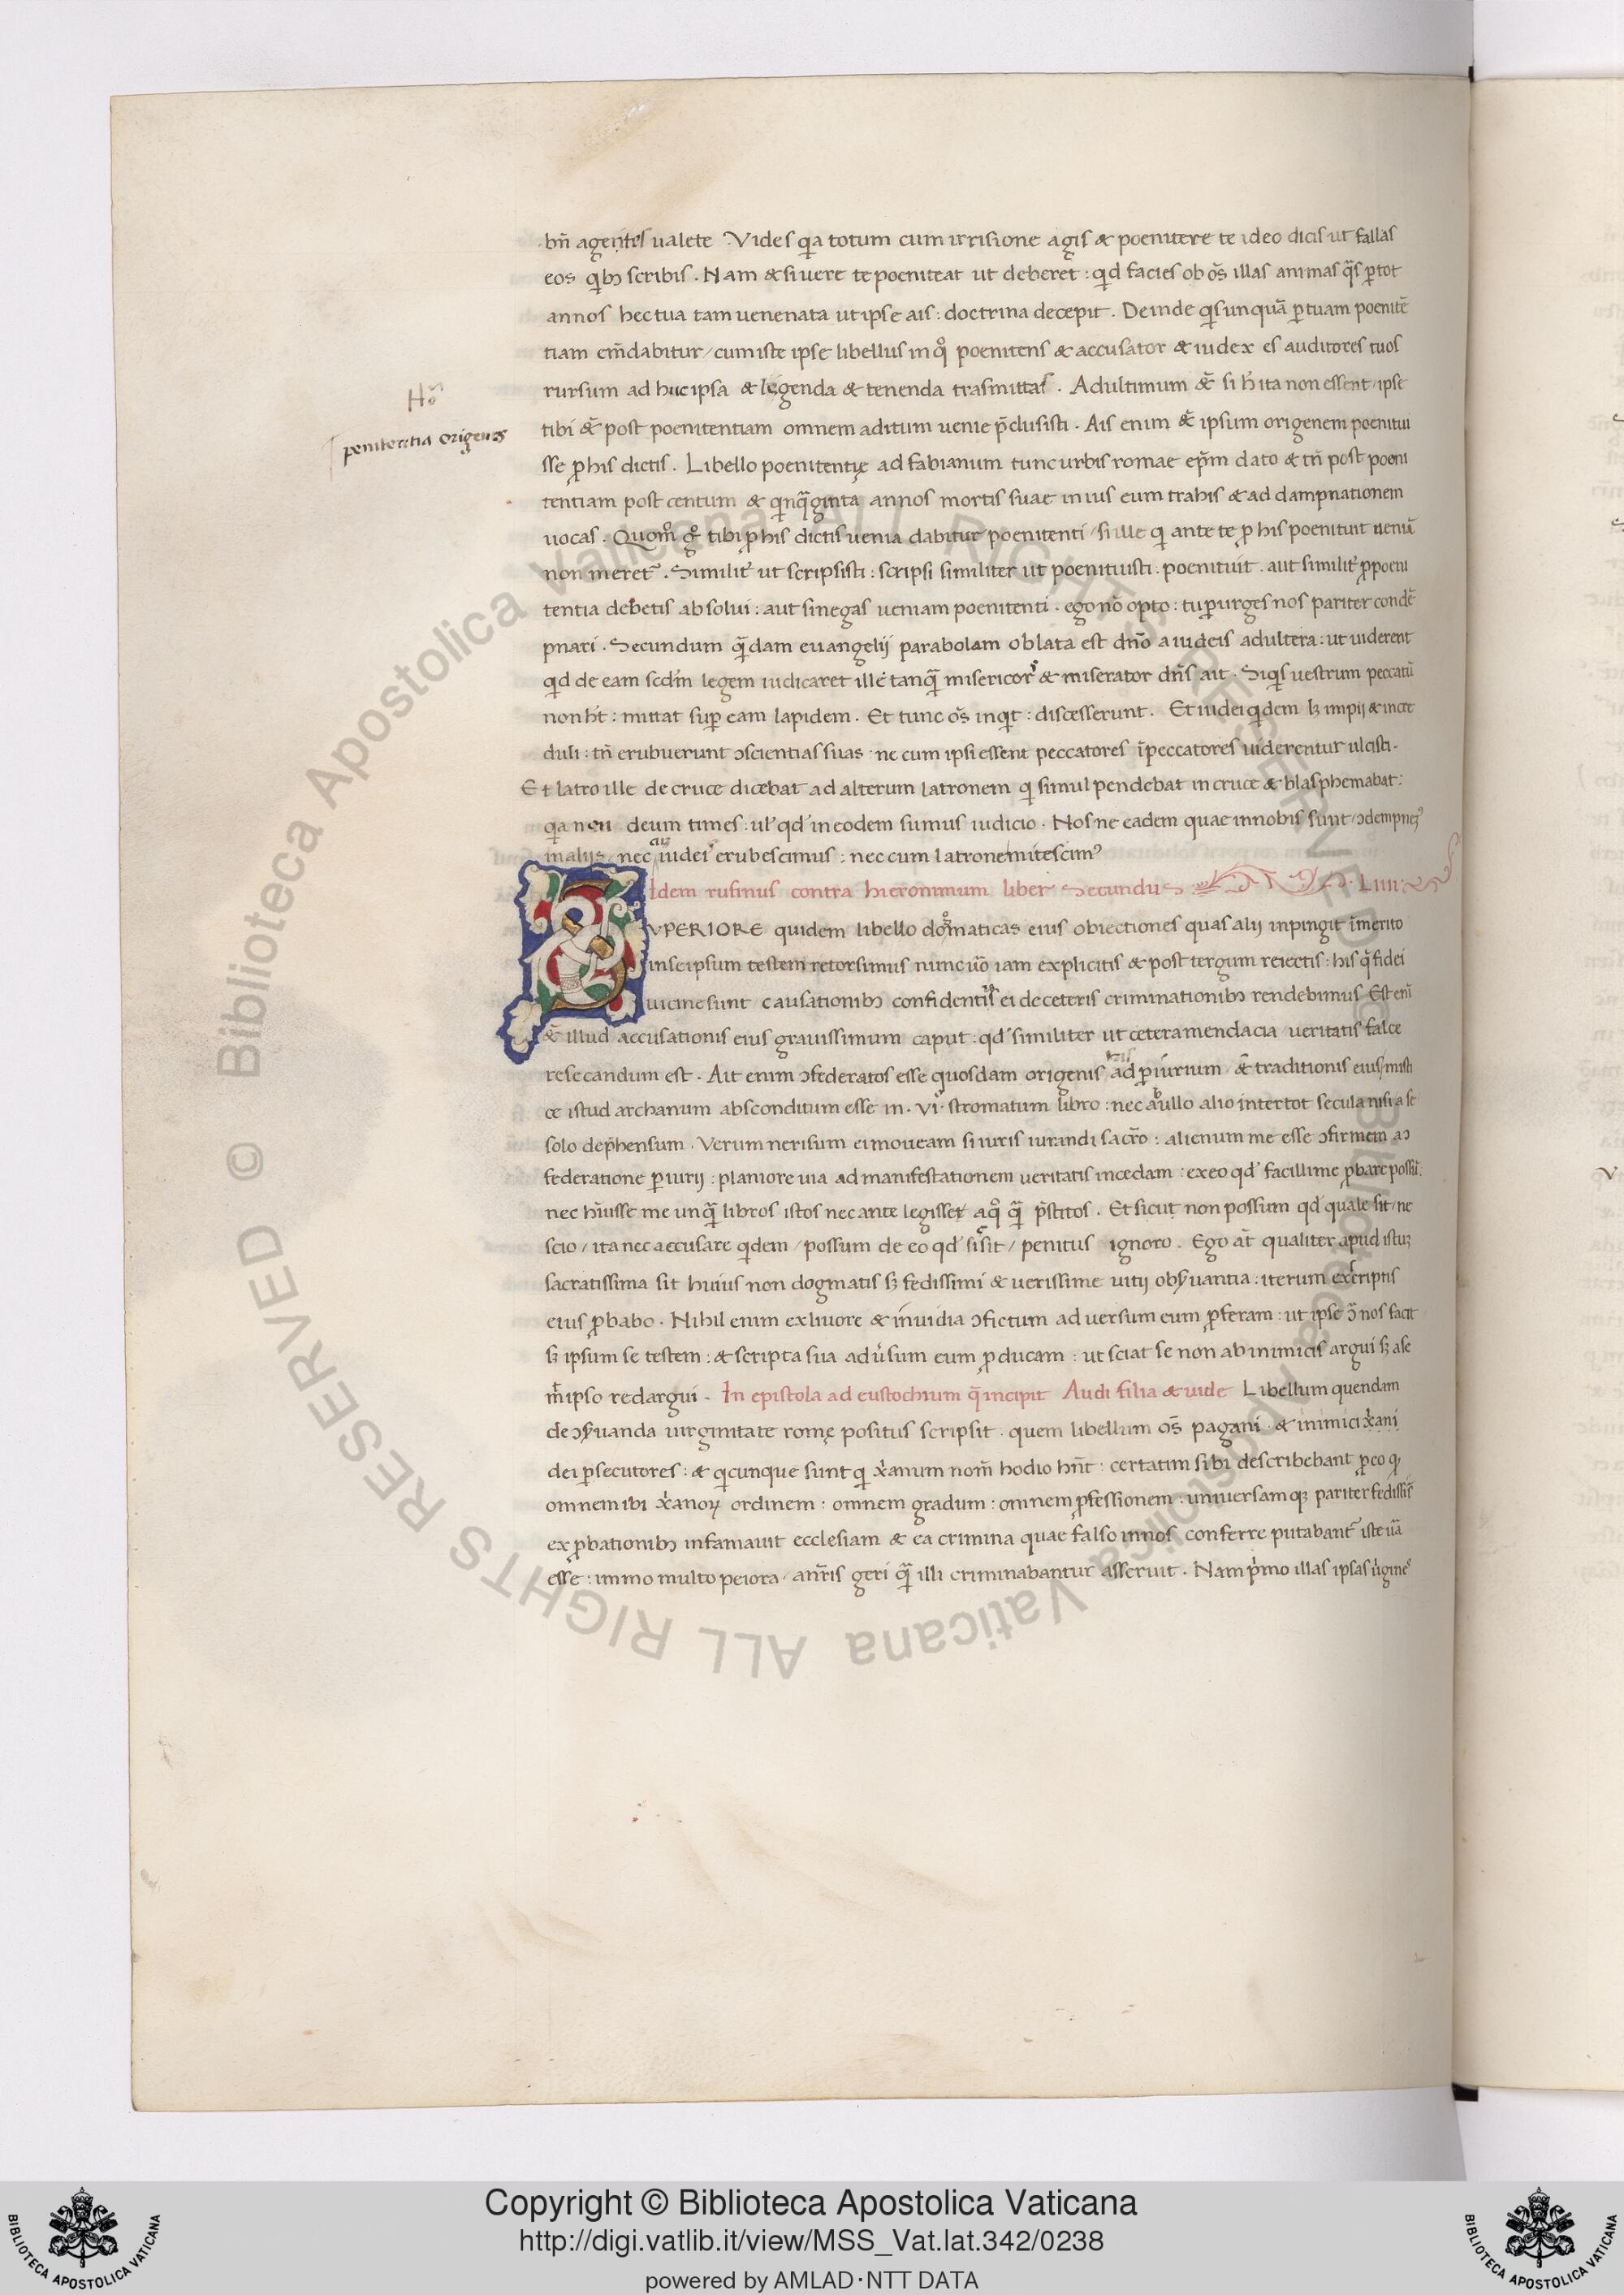 bn̄ agentes ualete Vides qa totum cum irrisione agis & poenitere te ideo dicis ut fallas
eos qb; scribis . Nam & si uere te poeniteat ut deberet : qd facies ob os̄ illas animas qs̄ ptot
annos hec tua tam uenenata ut ipse ais : doctrina decepit . Deinde qs unquā p tuam poenitē
tiam em̄dabitur / cum iste ipse libellus in qo poenitens & accusator & iudex es auditores tuos
rursum ad huc ipsa & legenda & tenenda trasmittas . Ad ultimum &̄ si h̄ ita non essent / ipse
Ho
penitentia origenis
tibi &̄ post poenitentiam omnem aditum uenie p̄clusisti . Ais enim &̄ ipsum origenem poenitui
sse p his dictis . Libello poenitentię ad fabianum tunc urbis romae ep̄m dato & tn̄ post poeni
tentiam post centum & qnqginta annos mortis suae in ius eum trahis & ad dampnationem
uocas . Quom̊ g̊ tibi p his dictis uenia dabitur poenitenti / si ille q ante te p his poenituit ueniā
non meret . Similit ut scripsisti : scripsi similiter ut poenituisti . poenituit . aut similit p poeni
tentia debetis absolui : aut si negas ueniam poenitenti . ego nō opto : tu p urges nos pariter condē
pnari . Secundum qdam euangelij parabolam oblata est dn̄o a iudeis adultera : ut uiderent
qd de eam scd̄m legem iudicaret ille tanq̄ misericors & miserator dn̄s ait . Siqs uestrum peccatū
non h̄t : mittat sup eam lapidem . Et tunc os̄ inqt : discesserunt . Et iudei qdem l; impij & incre
duli : tn̄ erubuerunt ɔscientias suas . ne cum ipsi essent peccatores ī peccatores uiderentur ulcisci .
Et latro ille de cruce dicebat ad alterum latronem q simul pendebat in cruce & blasphemabat :
qa non deum times : ul' qd' in eodem sumus iudicio . Nos ne eadem quae in nobis sunt / ɔdempnem9
in alijs / nec iudei erubescimus : nec cum latrone mitescim9
Idem rufinus contra hieronimum liber Secundus . LIIII
SVPERIORE quidem libello dogmaticas eius obiectiones quas alij inpingit īmerito
in se ipsum testem retorsimus nunc uō iam explicitis & post tergum reiectis : his q̄ fidei
uicine sunt causationib; confidentis ei de ceteris criminationib; rendebimus Est eni
&̄ illud accusationis eius grauissimum caput : qd' similiter ut cetera mendacia / ueritatis falce
resecandum est . Ait enim ɔfederatos esse quosdam origenis ad piurium / &̄ traditionis eius / misti
ce istud archanum absconditum esse in . vi . stromatum libro : nec ab ullo alio inter tot secula nisi a se
solo dephensum . Verum ne risum ei moueam si iuris iurandi sacr̄o : alienum me esse ɔfirmem a ɔ
federatione piurij : planiore uia ad manifestationem ueritatis incedam : ex eo qd' facillime pbare possū .
nec h̄uisse me unq̄ libros istos nec ante legisset a qo q̄ p̄stitos . Et sicut non possum qd' quale sit / ne
scio / ita nec accusare qdem / possum de eo qd' sic sit / penitus ignoro . Ego āt qualiter apud istum
sacratissima sit huius non dogmatis s; fedissimi & uerissime uitij obseruantia : iterum ex scriptis
eius pbabo . Nihil enim ex liuore & inuidia ɔfictum ad uersum eum pferam : ut ipse ɔ̄ nos facit
s; ipsum se testem : & scripta sua adusum eum p ducam : ut sciat se non ab inimicis argui s; a se
m̄ ipso redargui . In epistola ad eustochium q̄ incipit Audi filia & uide Libellum quendam
de ɔseruanda uirginitate romę positus scripsit . quem libellum os̄ pagani . & inimici xani
dei psecutores : & qcunque sunt q xanum nom̄ hodio hn̄t : certatim sibi describebant p eo q
omnem ibi xanor ordinem : omnem gradum : omnem pfessionem : uniuersam q; pariter fedissis
ex pbationib; infamauit ecclesiam & ea crimina quae falso in nos conferre putabant iste ua
esse : immo multo peiora / an̄ris geri q̄ illi criminabantur asseruit . Nam pmo illas ipsas ugines
Copyright © Biblioteca Apostolica Vaticana
http://digi.vatlib.it/view/MSS_Vat.lat.342/0238
powered by AMLAD·NTT DATA